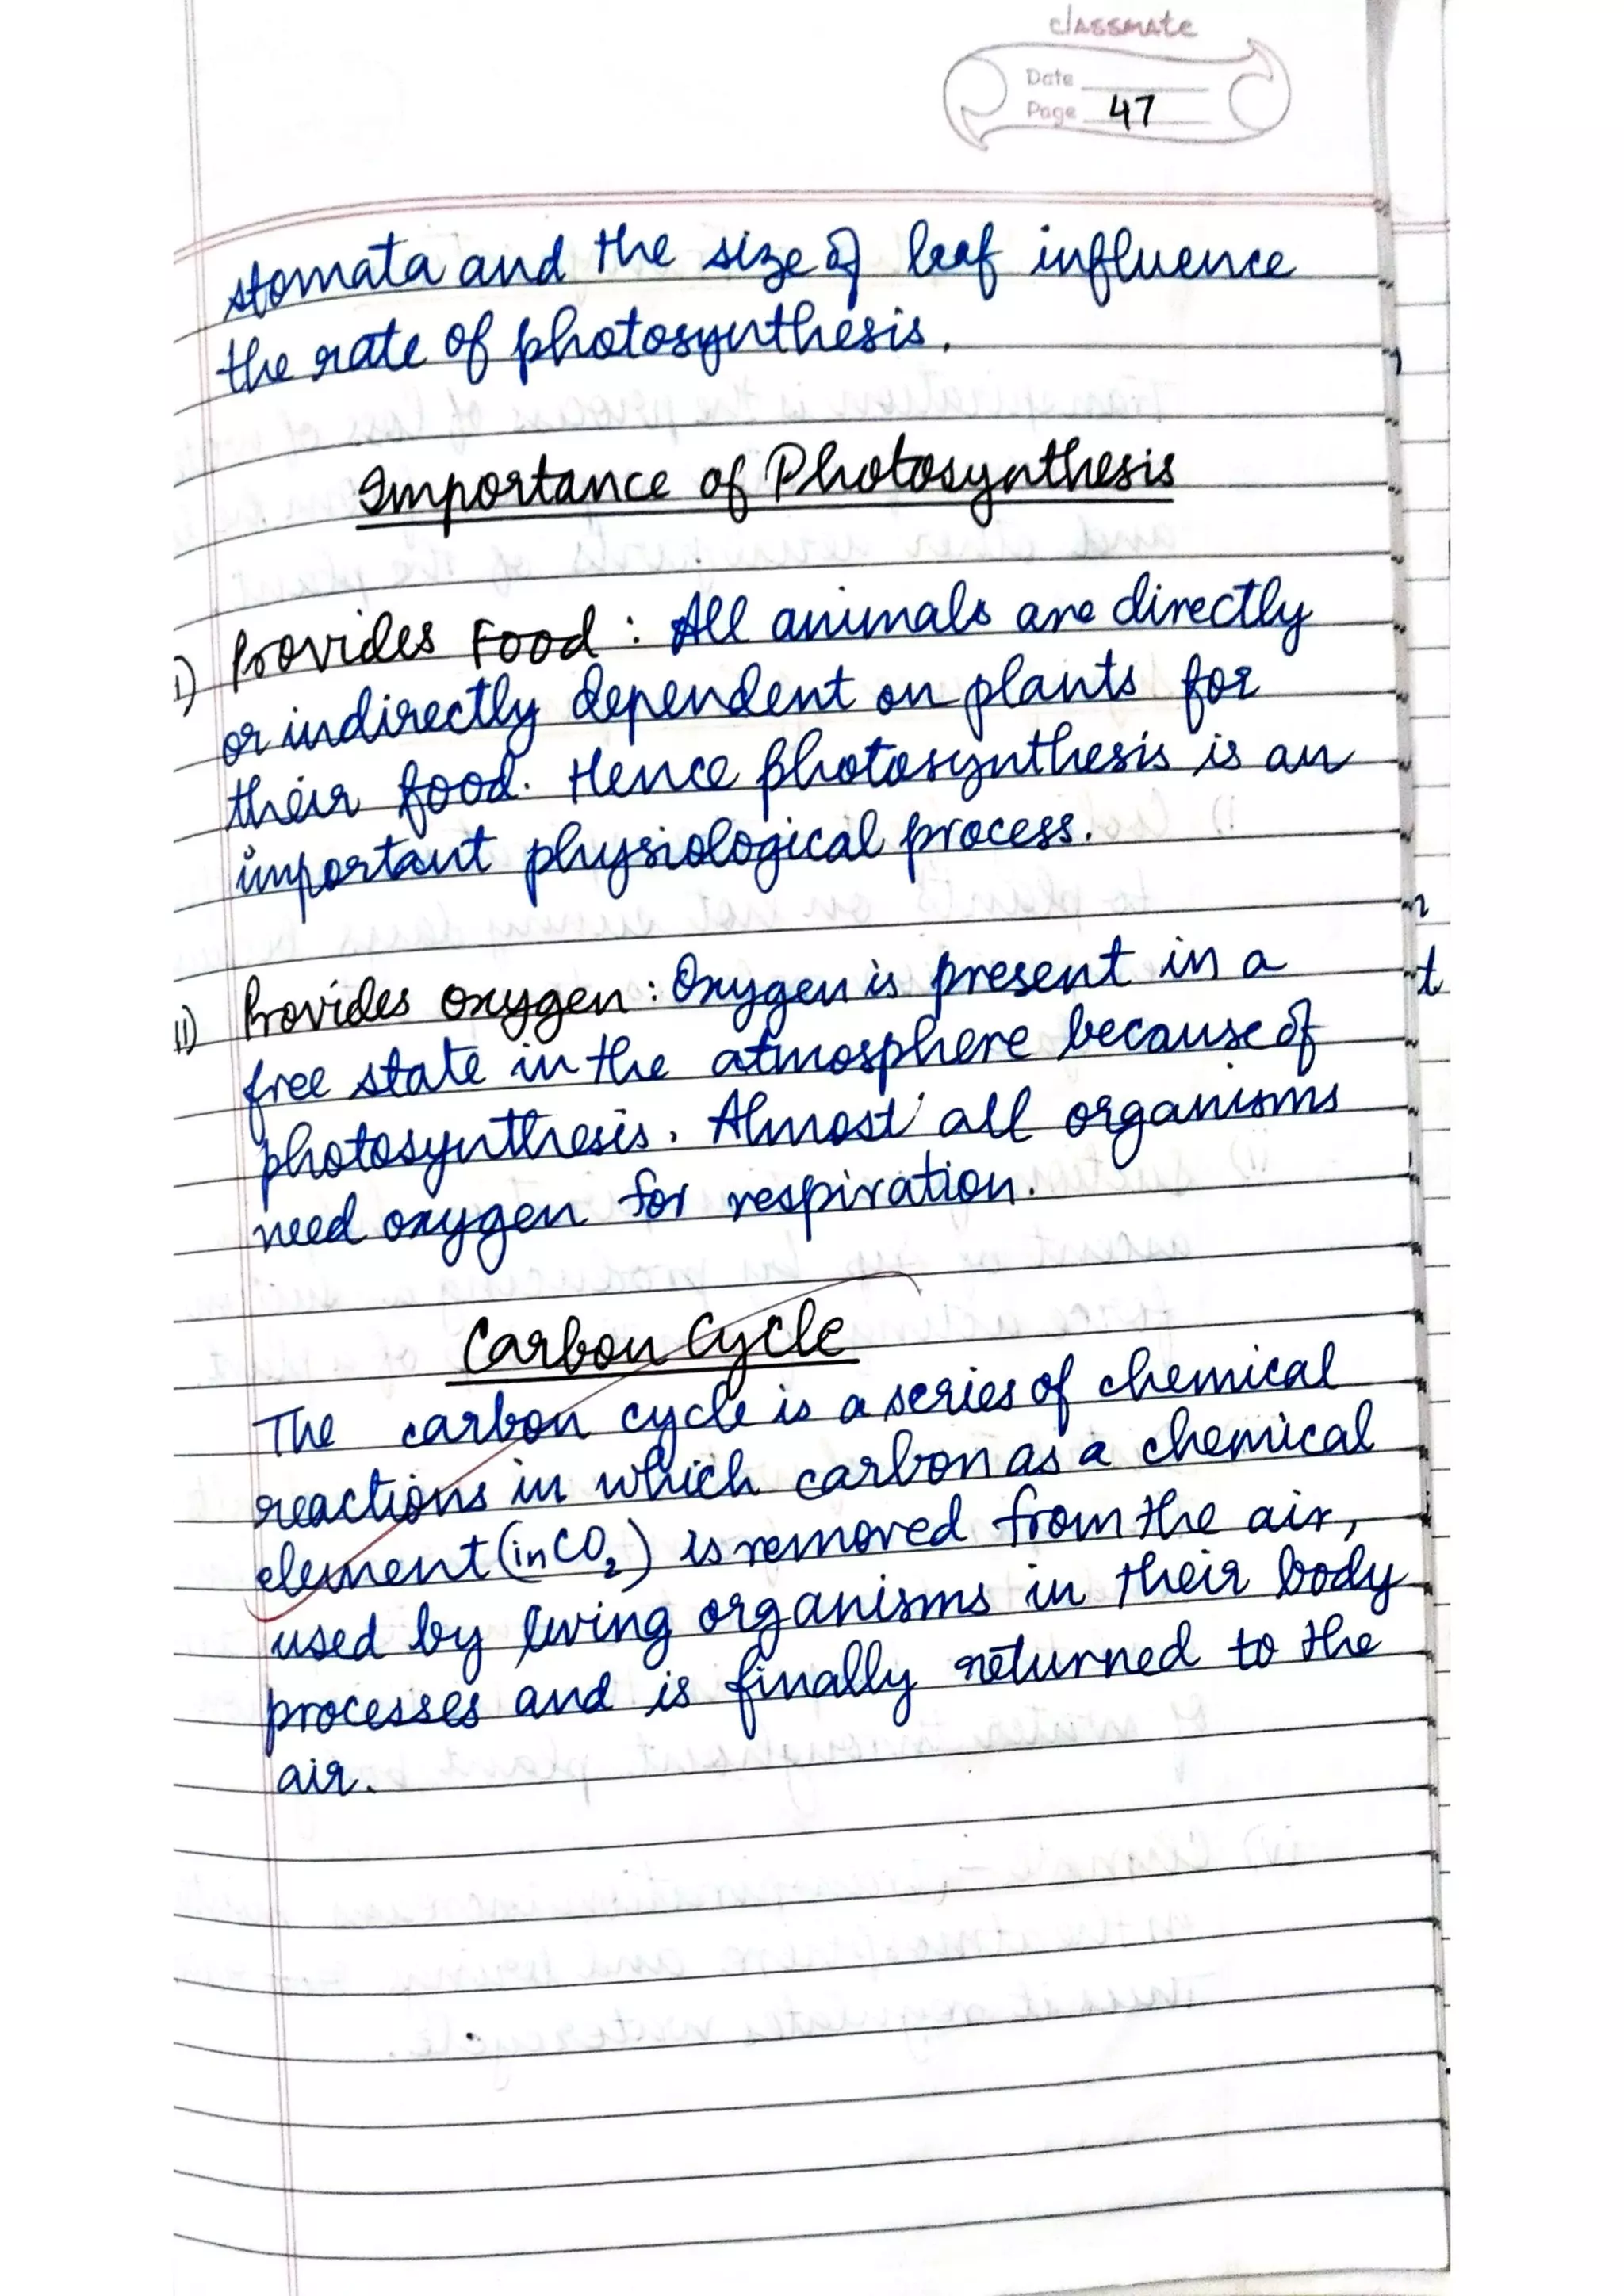 classmate
Date
Page 47
stomata and the size of leaf influence
the rate of photosynthesis.
Importance of Photosynthesis
i) Provides Food : All animals are directly
or indirectly dependent on plants for
their food. Hence photosynthesis is an
important physiological process.
ii) Provides oxygen : Oxygen is present in a
free state in the atmosphere because of
photosynthesis. Almost all organisms
need oxygen for respiration.
Carbon Cycle
The carbon cycle is a series of chemical
reactions in which carbon as a chemical
element (in CO₂) is removed from the air,
used by living organisms in their body
processes and is finally returned to the
air.